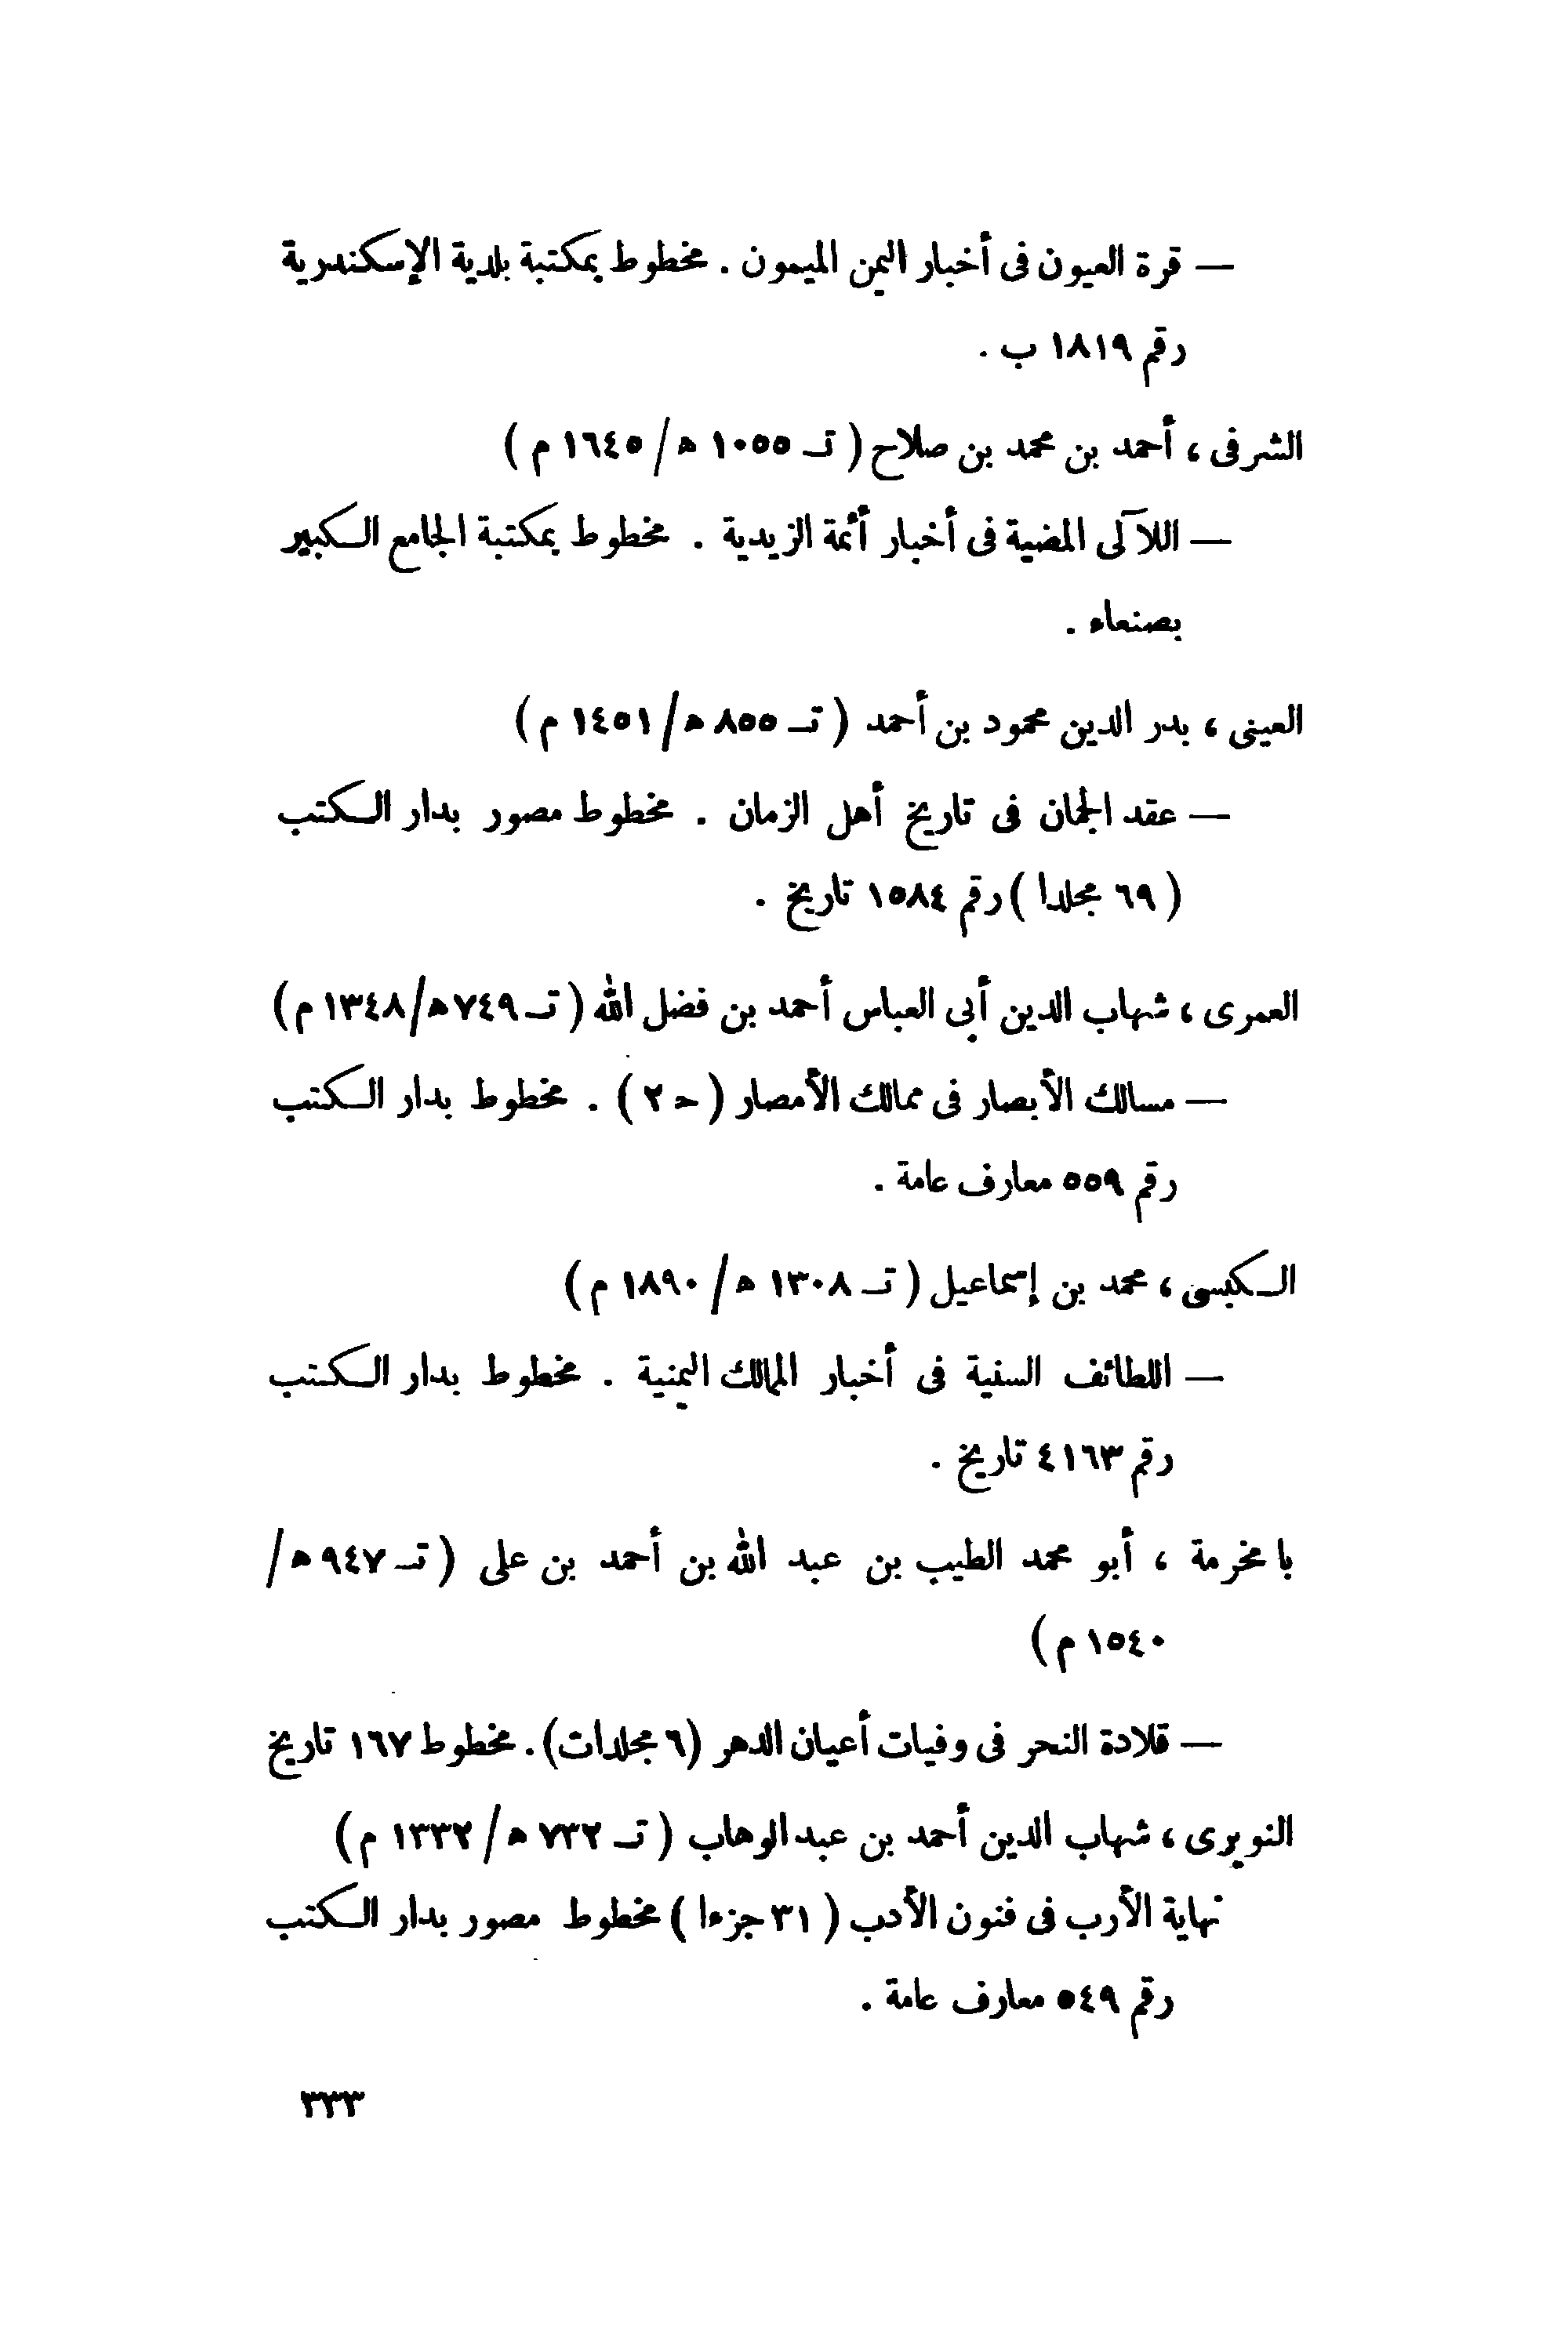 — قرة العيون فى أخبار اليمن الميمون . مخطوط بمكتبة بلدية الإسكندرية
رقم ١٨١٩ ب .
الشرفى ، أحمد بن محمد بن صلاح ( تـ ١٠٥٥ هـ / ١٦٤٥ م )
— اللآلى المضية فى أخبار أئمة الزيدية . مخطوط بمكتبة الجامع الكبير
بصنعاء .
العينى ، بدر الدين محمود بن أحمد ( تـ ٨٥٥ هـ / ١٤٥١ م )
— عقد الجمان فى تاريخ أهل الزمان . مخطوط مصور بدار الكتب
( ٦٩ مجلدا ) رقم ١٥٨٤ تاريخ .
العمرى ، شهاب الدين أبى العباس أحمد بن فضل الله ( تـ ٧٤٩ هـ / ١٣٤٨ م )
— مسالك الأبصار فى ممالك الأمصار ( حـ ٢ ) . مخطوط بدار الكتب
رقم ٥٥٩ معارف عامة .
الكبسى ، محمد بن إسماعيل ( تـ ١٣٠٨ هـ / ١٨٩٠ م )
— اللطائف السنية فى أخبار الممالك اليمنية . مخطوط بدار الكتب
رقم ٤١٦٣ تاريخ .
با مخرمة ، أبو محمد الطيب بن عبد الله بن أحمد بن على ( تـ ٩٤٧ هـ /
١٥٤٠ م )
— قلادة النحر فى وفيات أعيان الدهر (٦ مجلدات) . مخطوط ١٦٧ تاريخ
النويرى ، شهاب الدين أحمد بن عبد الوهاب ( تـ ٧٣٢ هـ / ١٣٣٢ م )
نهاية الأرب فى فنون الأدب ( ٣١ جزءا ) مخطوط مصور بدار الكتب
رقم ٥٤٩ معارف عامة .
٣٣٣